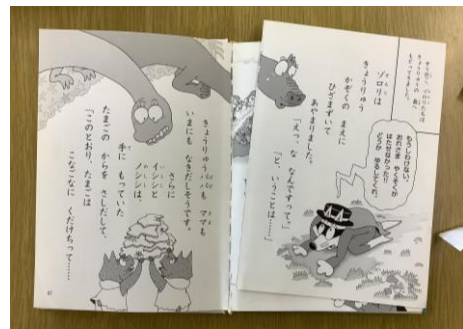 ゾロリは
きょうりゅう
かぞくの まえに
ひざまずいて
あやまりました。
「えっ、な なんですって。」
「と、いうことは……」
もうしわけない。
おれさま やくそくが
はたせなかった!!
どうか ゆるしてくれ。
きょうりゅうパパも ママも
いまにも なきだしそうです。
さらに
イシシと
ノシシは、
手に もっていた
たまごの からを さしだして、
「このとおり、たまごは
こなごなに くだけちって……
67